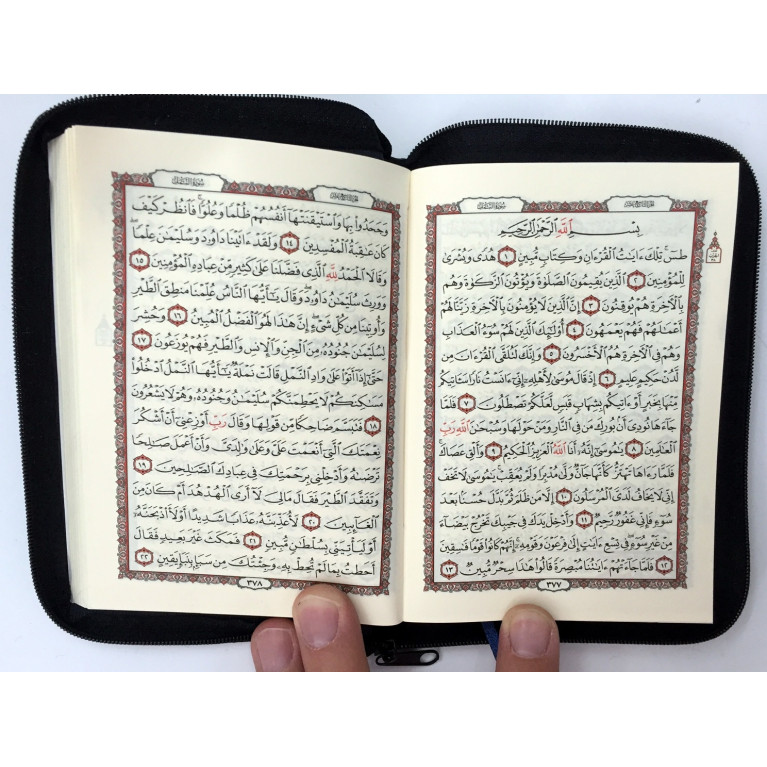 سورة النمل
بِسْمِ اللَّهِ الرَّحْمَٰنِ الرَّحِيمِ
طسٓ تِلْكَ ءَايَٰتُ الْقُرْءَانِ وَكِتَابٍ مُّبِينٍ ١ هُدًى وَبُشْرَىٰ
لِلْمُؤْمِنِينَ ٢ الَّذِينَ يُقِيمُونَ الصَّلَوٰةَ وَيُؤْتُونَ الزَّكَوٰةَ وَهُم
بِالْءَاخِرَةِ هُمْ يُوقِنُونَ ٣ إِنَّ الَّذِينَ لَا يُؤْمِنُونَ بِالْءَاخِرَةِ زَيَّنَّا لَهُمْ
أَعْمَٰلَهُمْ فَهُمْ يَعْمَهُونَ ٤ أُو۟لَٰٓئِكَ الَّذِينَ لَهُمْ سُوٓءُ الْعَذَابِ
وَهُمْ فِي الْءَاخِرَةِ هُمُ الْأَخْسَرُونَ ٥ وَإِنَّكَ لَتُلَقَّى الْقُرْءَانَ مِن
لَّدُنْ حَكِيمٍ عَلِيمٍ ٦ إِذْ قَالَ مُوسَىٰ لِأَهْلِهِۦٓ إِنِّىٓ ءَانَسْتُ نَارًا سَـَٔاتِيكُم
مِّنْهَا بِخَبَرٍ أَوْ ءَاتِيكُم بِشِهَابٍ قَبَسٍ لَّعَلَّكُمْ تَصْطَلُونَ ٧ فَلَمَّا
جَآءَهَا نُودِىَ أَنۢ بُورِكَ مَن فِي النَّارِ وَمَنْ حَوْلَهَا وَسُبْحَٰنَ اللَّهِ رَبِّ
الْعَٰلَمِينَ ٨ يَٰمُوسَىٰٓ إِنَّهُۥٓ أَنَا اللَّهُ الْعَزِيزُ الْحَكِيمُ ٩ وَأَلْقِ عَصَاكَ
فَلَمَّا رَءَاهَا تَهْتَزُّ كَأَنَّهَا جَآنٌّ وَلَّىٰ مُدْبِرًا وَلَمْ يُعَقِّبْ يَٰمُوسَىٰ لَا تَخَفْ
إِنِّى لَا يَخَافُ لَدَىَّ الْمُرْسَلُونَ ١٠ إِلَّا مَن ظَلَمَ ثُمَّ بَدَّلَ حُسْنًۢا بَعْدَ
سُوٓءٍ فَإِنِّى غَفُورٌ رَّحِيمٌ ١١ وَأَدْخِلْ يَدَكَ فِى جَيْبِكَ تَخْرُجْ بَيْضَآءَ
مِنْ غَيْرِ سُوٓءٍ فِى تِسْعِ ءَايَٰتٍ إِلَىٰ فِرْعَوْنَ وَقَوْمِهِۦٓ إِنَّهُمْ كَانُوا۟ قَوْمًا فَٰسِقِينَ
١٢ فَلَمَّا جَآءَتْهُمْ ءَايَٰتُنَا مُبْصِرَةً قَالُوا۟ هَٰذَا سِحْرٌ مُّبِينٌ ١٣
٣٧٧
سورة النمل
وَجَحَدُوا۟ بِهَا وَاسْتَيْقَنَتْهَآ أَنفُسُهُمْ ظُلْمًا وَعُلُوًّا فَانظُرْ كَيْفَ
كَانَ عَٰقِبَةُ الْمُفْسِدِينَ ١٤ وَلَقَدْ ءَاتَيْنَا دَاوُۥدَ وَسُلَيْمَٰنَ عِلْمًا
وَقَالَا الْحَمْدُ لِلَّهِ الَّذِى فَضَّلَنَا عَلَىٰ كَثِيرٍ مِّنْ عِبَادِهِ الْمُؤْمِنِينَ ١٥
وَوَرِثَ سُلَيْمَٰنُ دَاوُۥدَ وَقَالَ يَٰٓأَيُّهَا النَّاسُ عُلِّمْنَا مَنطِقَ الطَّيْرِ
وَأُوتِينَا مِن كُلِّ شَىْءٍ إِنَّ هَٰذَا لَهُوَ الْفَضْلُ الْمُبِينُ ١٦ وَحُشِرَ
لِسُلَيْمَٰنَ جُنُودُهُۥ مِنَ الْجِنِّ وَالْإِنسِ وَالطَّيْرِ فَهُمْ يُوزَعُونَ ١٧
حَتَّىٰٓ إِذَآ أَتَوْا۟ عَلَىٰ وَادِ النَّمْلِ قَالَتْ نَمْلَةٌ يَٰٓأَيُّهَا النَّمْلُ ادْخُلُوا۟
مَسَٰكِنَكُمْ لَا يَحْطِمَنَّكُمْ سُلَيْمَٰنُ وَجُنُودُهُۥ وَهُمْ لَا يَشْعُرُونَ
١٨ فَتَبَسَّمَ ضَاحِكًا مِّن قَوْلِهَا وَقَالَ رَبِّ أَوْزِعْنِىٓ أَنْ أَشْكُرَ
نِعْمَتَكَ الَّتِىٓ أَنْعَمْتَ عَلَىَّ وَعَلَىٰ وَٰلِدَىَّ وَأَنْ أَعْمَلَ صَٰلِحًا
تَرْضَىٰهُ وَأَدْخِلْنِى بِرَحْمَتِكَ فِى عِبَادِكَ الصَّٰلِحِينَ ١٩
وَتَفَقَّدَ الطَّيْرَ فَقَالَ مَا لِىَ لَآ أَرَى الْهُدْهُدَ أَمْ كَانَ مِنَ
الْغَآئِبِينَ ٢٠ لَأُعَذِّبَنَّهُۥ عَذَابًا شَدِيدًا أَوْ لَأَا۟ذْبَحَنَّهُۥٓ
أَوْ لَيَأْتِيَنِّى بِسُلْطَٰنٍ مُّبِينٍ ٢١ فَمَكَثَ غَيْرَ بَعِيدٍ فَقَالَ
أَحَطتُ بِمَا لَمْ تُحِطْ بِهِۦ وَجِئْتُكَ مِن سَبَإٍۭ بِنَبَإٍ يَقِينٍ ٢٢
٣٧٨